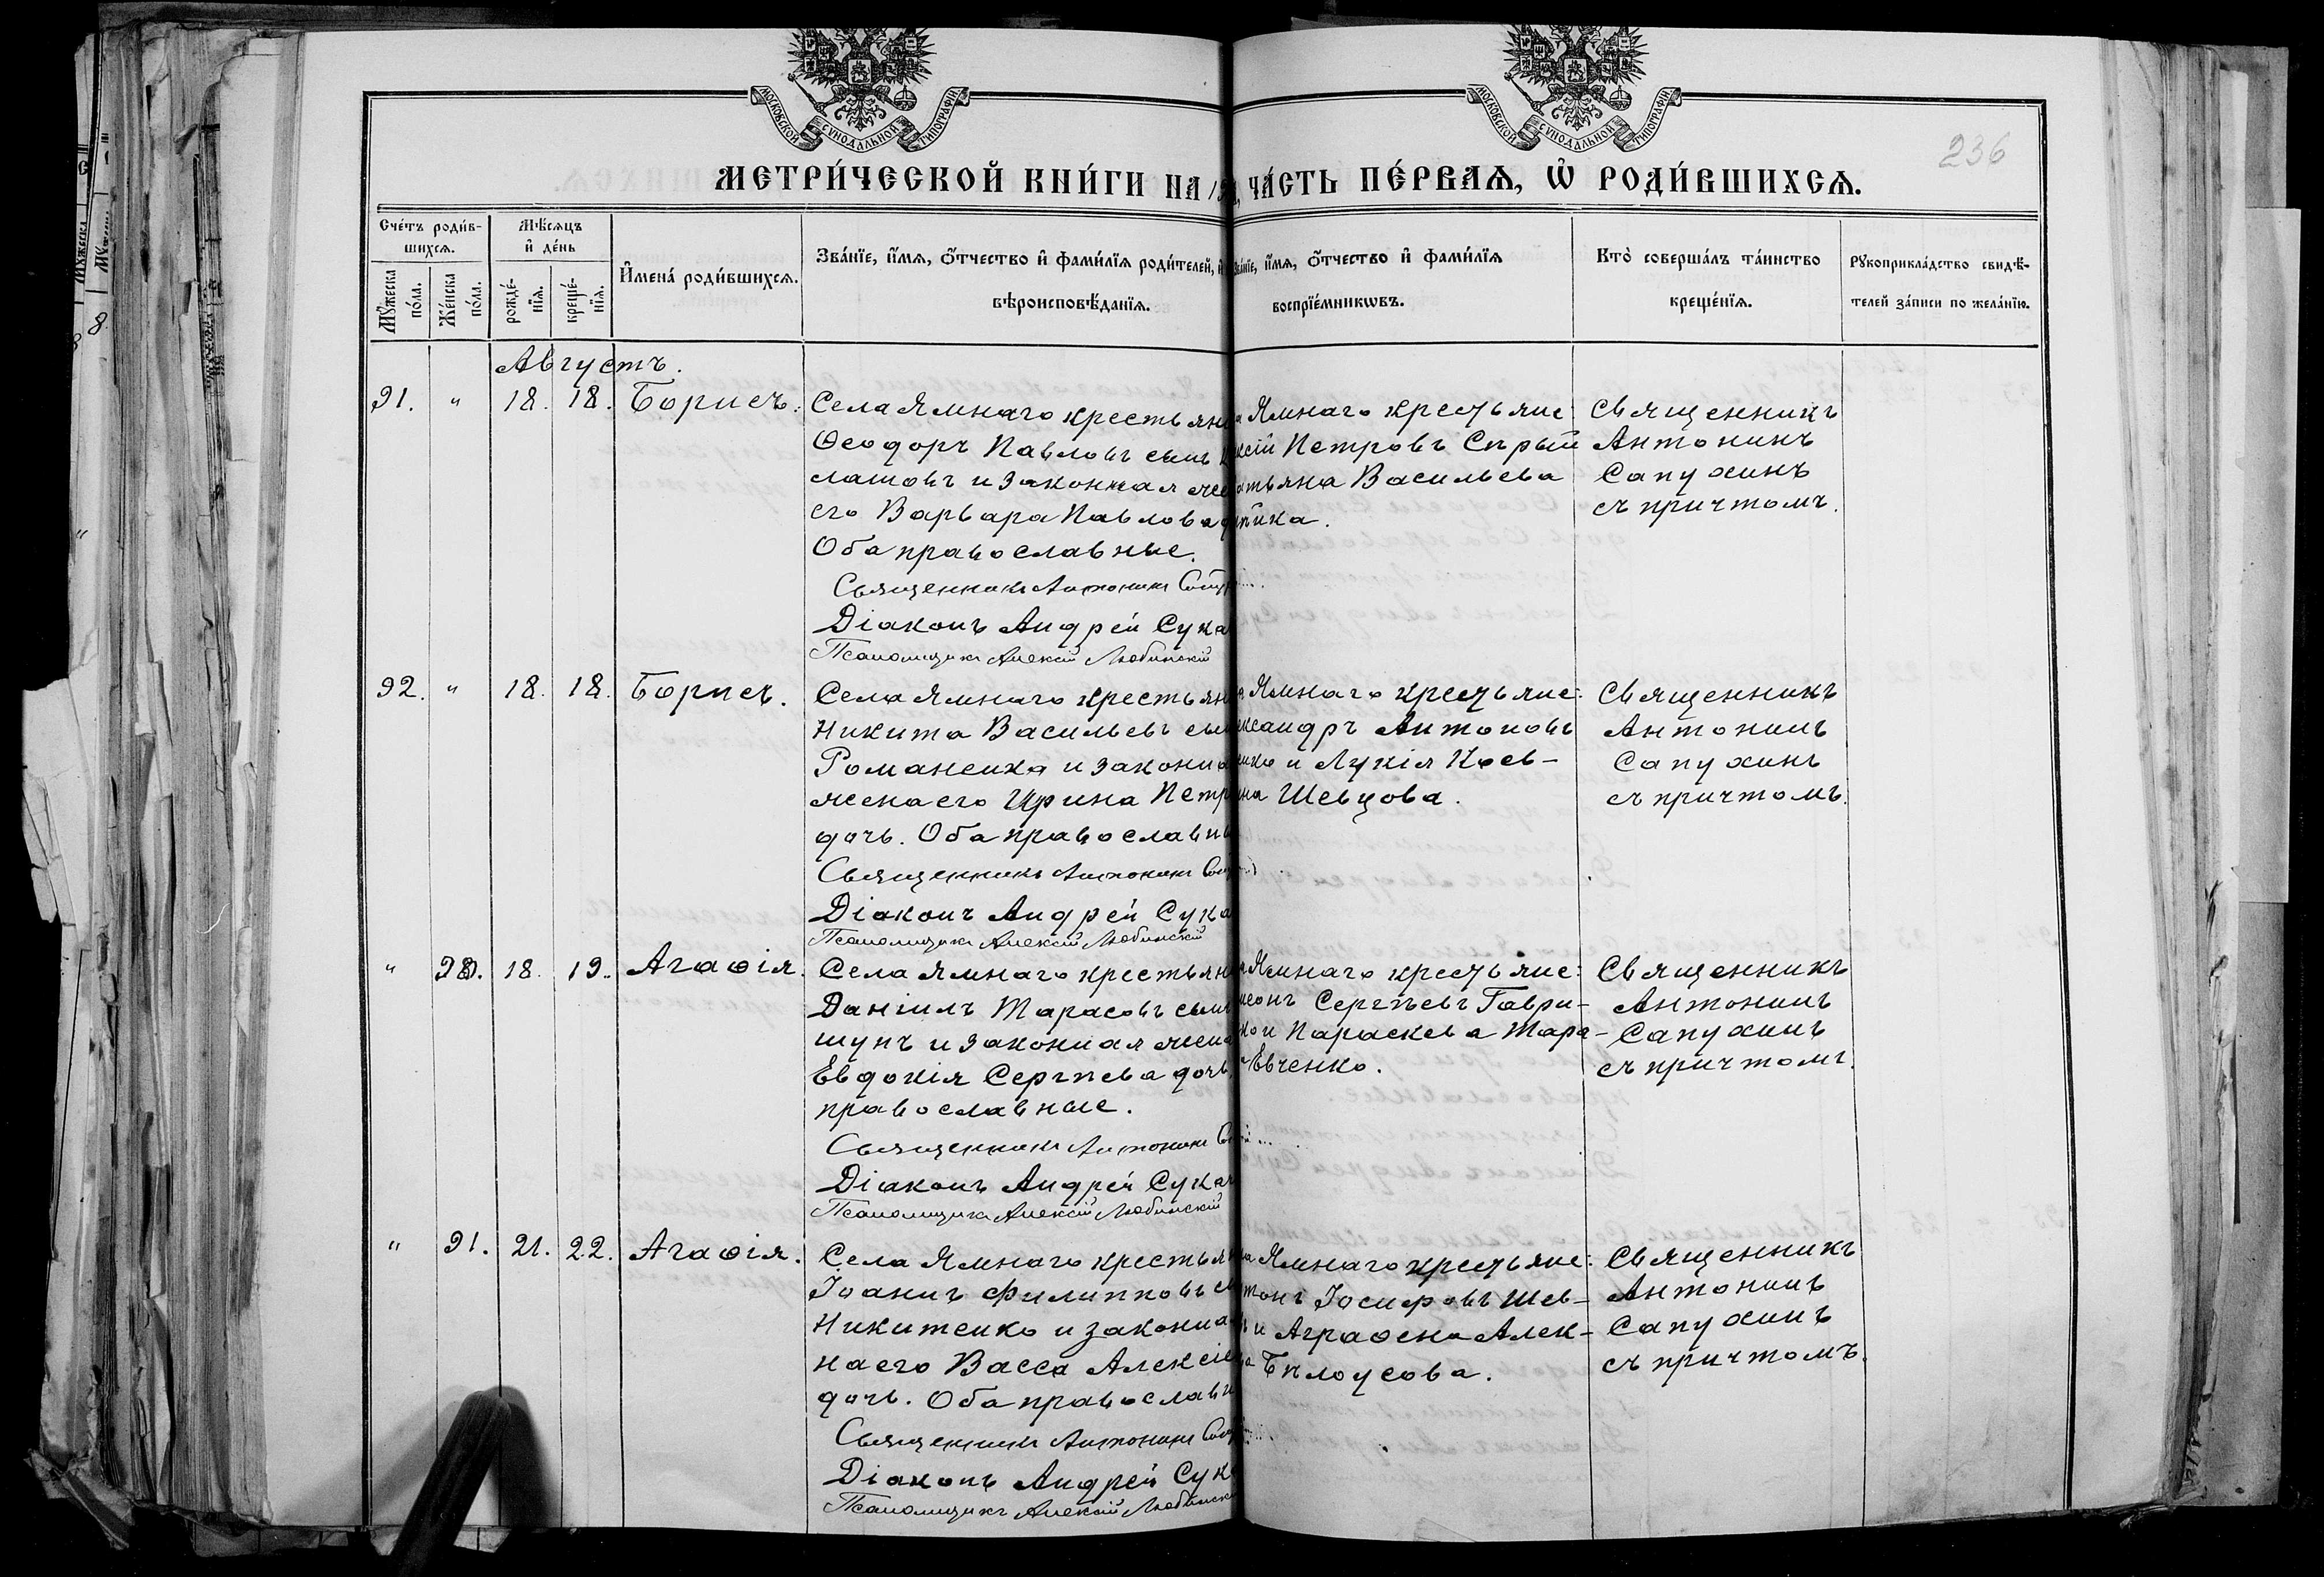 МОСКОВСКОЙ СѴНОДАЛЬНОЙ ТИПОГРАФІИ
МОСКОВСКОЙ СѴНОДАЛЬНОЙ ТИПОГРАФІИ
236
МЕТРИ́ЧЕСКОЙ КНИ́ГИ НА
ЧА́СТЬ ПЕ́РВАѦ, Ѡ҆ РОДИ́ВШИХСѦ.
Сче́тъ роди́в-
шихсѧ.
Мꙋ́жеска по́ла.
Же́нска по́ла.
Мѣ́сѧцъ
и҆ де́нь
рожде́-
нїѧ.
креще́-
нїѧ.
И҆мена́ роди́вшихсѧ.
Зва́нїе, и҆́мѧ, ѻ҆́тчество и҆ фами́лїѧ роди́телей, и҆
вѣроисповѣ́данїѧ.
Зва́нїе, и҆́мѧ, ѻ҆́тчество и҆ фами́лїѧ
воспрїе́мникѡвъ.
Кто̀ соверша́лъ та́инство
креще́нїѧ.
Рꙋкоприкла́дство свидѣ́-
телей за́писи по жела́нїю.
Августъ.
91. " 18. 18. Борисъ.
Села Ямнаго крестьян
Ѳеодоръ Павловъ сынъ
латовъ и законная же
его Варвара Павлова д
Оба православные.
Священникъ Антонинъ
Діаконъ Андрей Сука
Псаломщикъ Алексій Любинскій
Ямнаго крестьяне
ксій Петровъ Сѣрый
атьяна Васильева
пика.
Священникъ
Антонинъ
Сапухинъ
съ причтомъ.
92. " 18. 18. Борисъ.
Села Ямнаго крестьян
Никита Васильевъ сын
Романенко и законна
жена его Ирина Петр
дочь. Оба православн
Священникъ Антонинъ
Діаконъ Андрей Сука
Псаломщикъ Алексій Любинскій
Ямнаго крестьяне:
ксандръ Антоновъ
енко и Лукія Иов-
на Шевцова.
Священникъ
Антонинъ
Сапухинъ
съ причтомъ.
" 90. 18. 19. Агаѳія.
Села Ямнаго крестьян
Даніилъ Тарасовъ сын
шупъ и законная жена
Евдокія Сергѣева дочь.
православные.
Священникъ Антонинъ
Діаконъ Андрей Сука
Псаломщикъ Алексій Любинскій
Ямнаго крестьяне:
меонъ Сергѣевъ Гаври-
ко и Параскева Тара-
Евченко.
Священникъ
Антонинъ
Сапухинъ
съ причтомъ.
" 91. 21. 22. Агаѳія.
Села Ямнаго крестьян
Іоаннъ Филипповъ с
Никитенко и законна
на его Васса Алексіе
дочь. Оба православн
Священникъ Антонинъ
Діаконъ Андрей Сук
Псаломщикъ Алексій Любинскі
Ямнаго крестьяне:
тонъ Іосифовъ Шев-
и Аграѳена Алек-
Бѣлоусова.
Священникъ
Антонинъ
Сапухинъ
съ причтомъ.